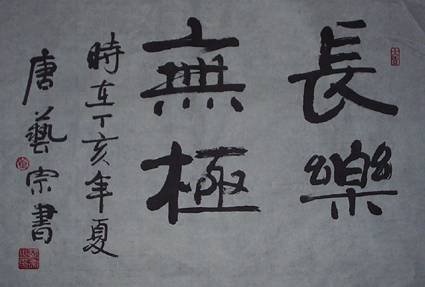 長樂
無極
時在丁亥年夏
唐藝宗書